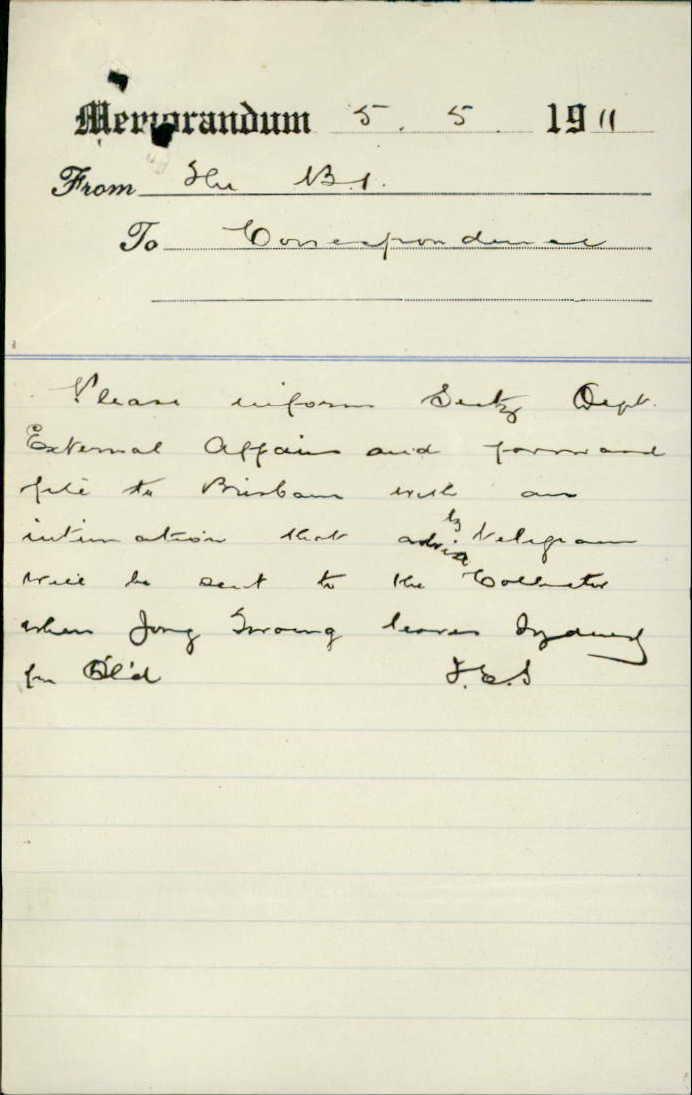 Memorandum 5. 5. 1911
From The B.I.
To Correspondence
Please inform Secty Dept.
External Affairs and forward
file to Brisbane with an
intimation that advice by telegram
will be sent to the Collector
when Jong Swong leaves Sydney
for Q'l'd J.E.S